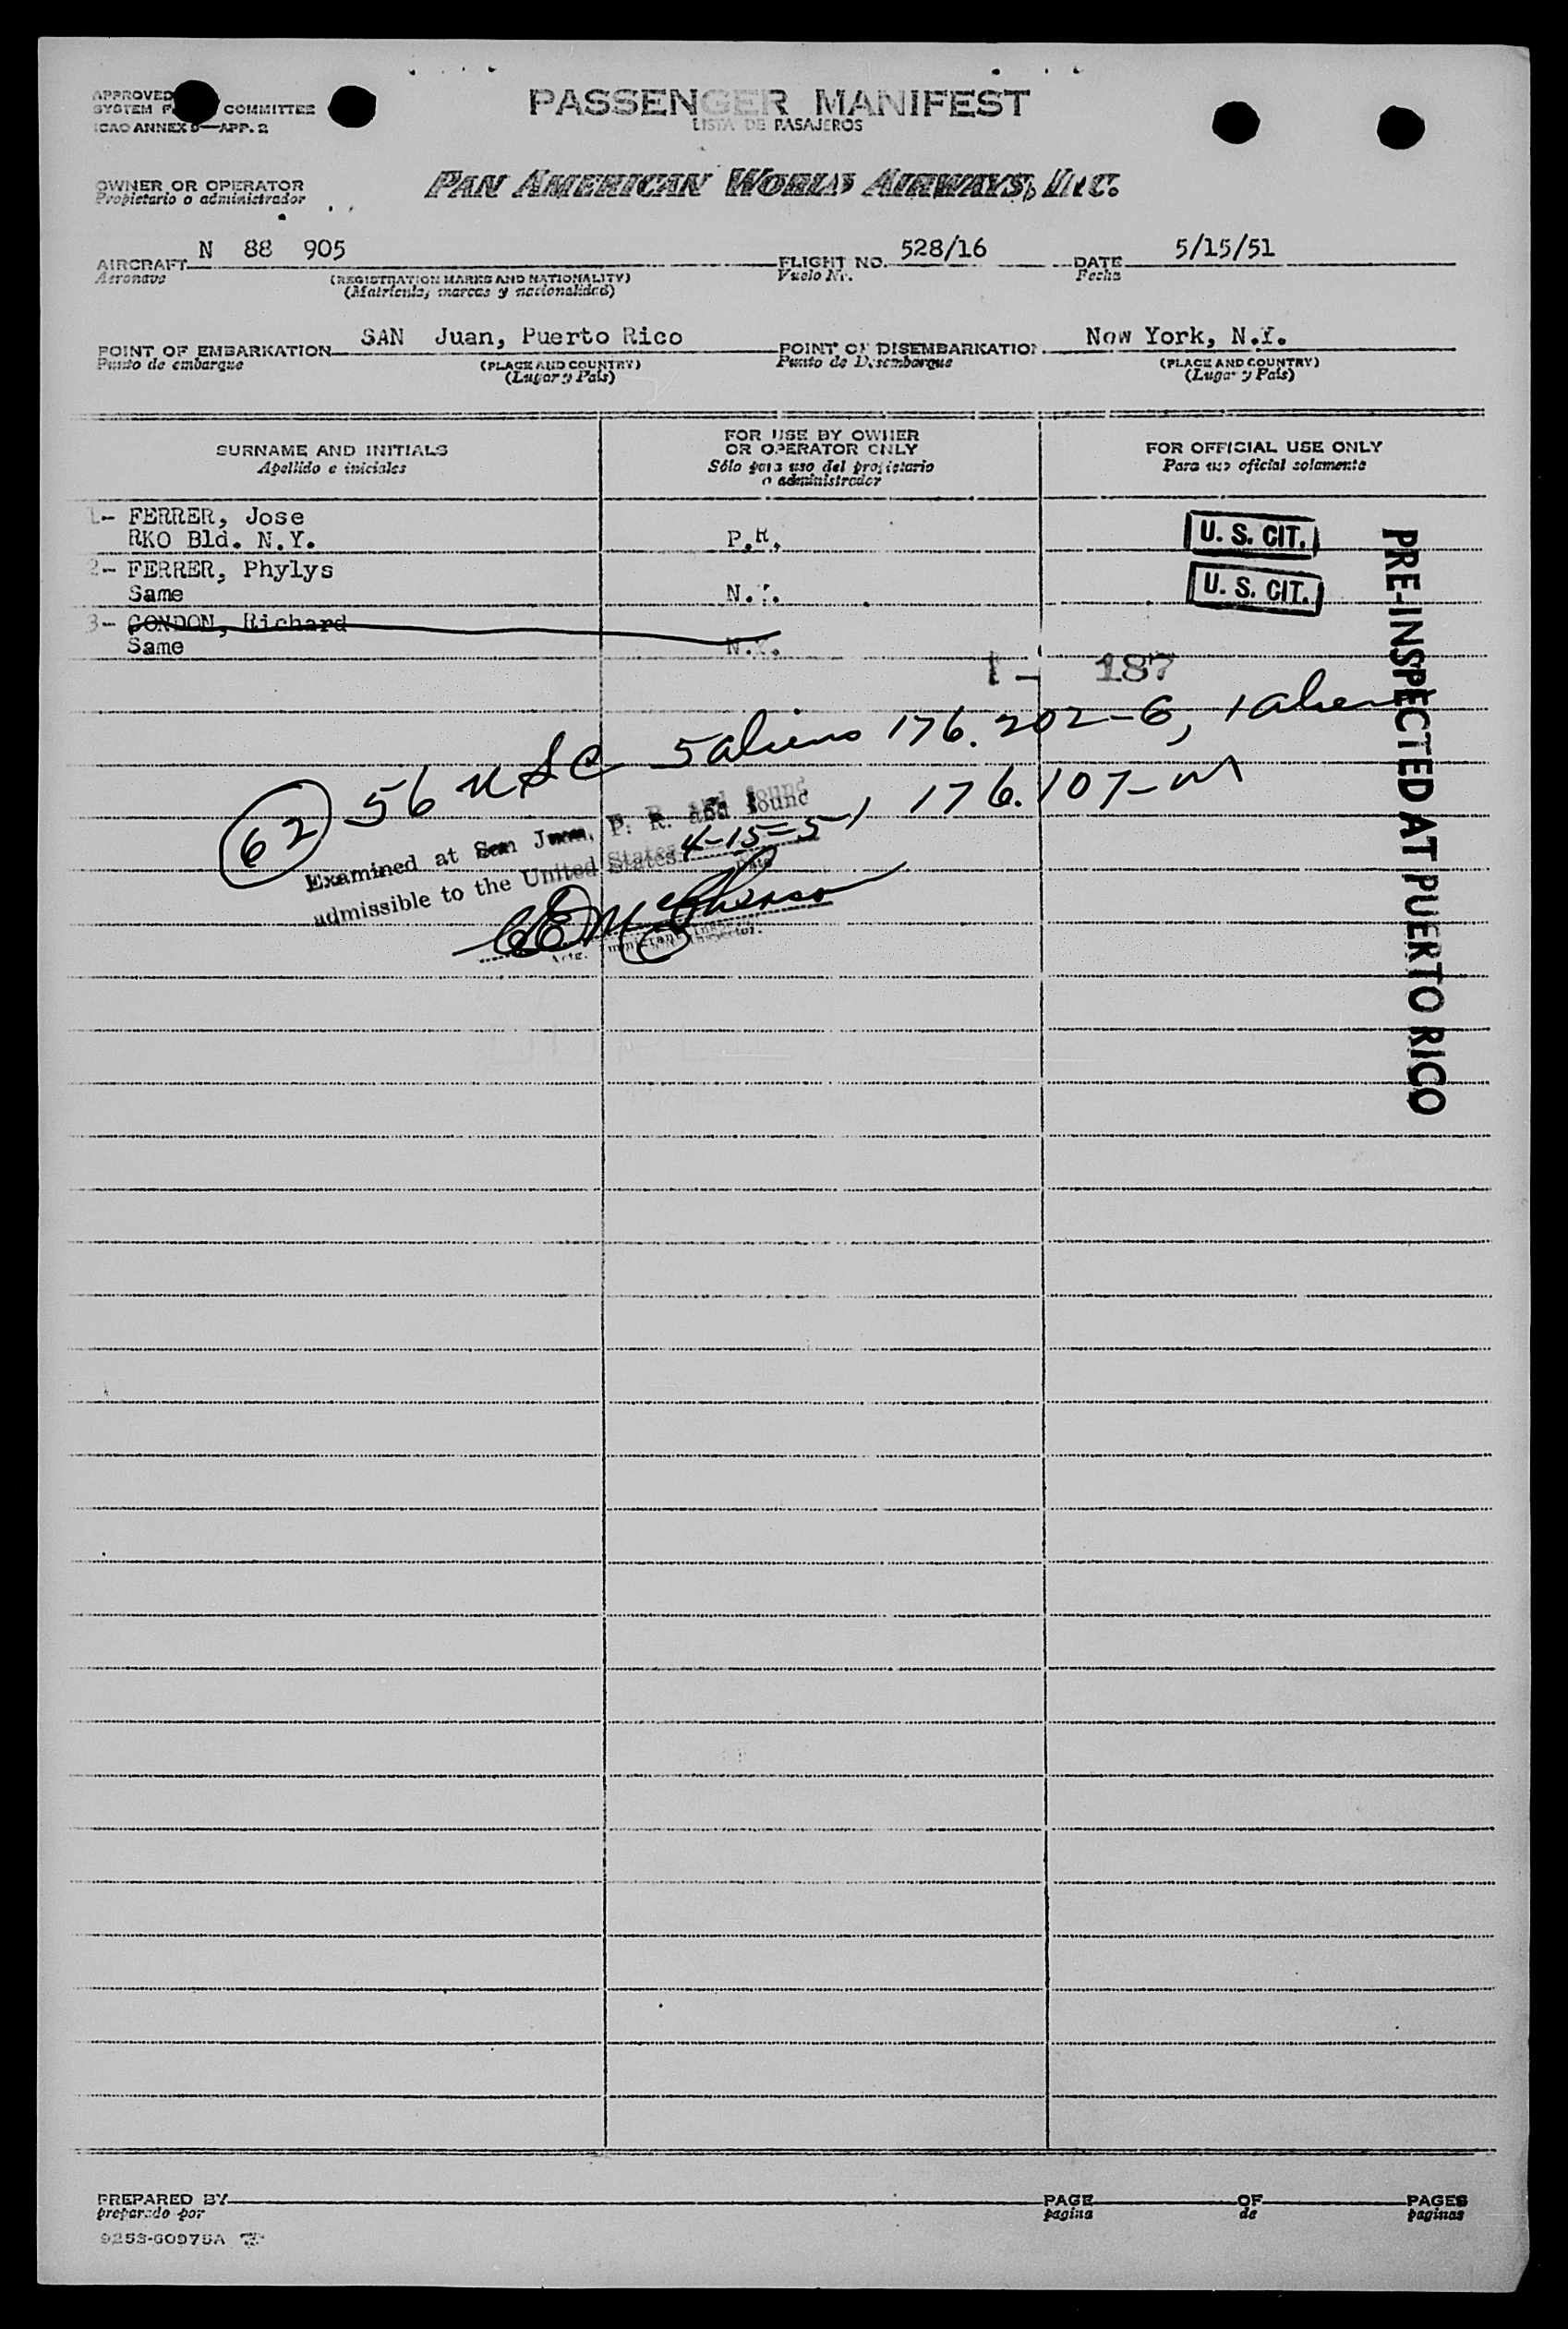 APPROVED
SYSTEM COMMITTEE
ICAO ANNEX 9—APP. 2
PASSENGER MANIFEST
LISTA DE PASAJEROS
OWNER OR OPERATOR
Propietario o administrador
PAN AMERICAN WORLD AIRWAYS, INC.
AIRCRAFT N 88 905 FLIGHT NO. 528/16 DATE 5/15/51
Aeronave (REGISTRATION MARKS AND NATIONALITY) Vuelo Nr. Fecha
(Matricula, marcas y nacionalidad)
POINT OF EMBARKATION SAN Juan, Puerto Rico POINT OF DISEMBARKATION New York, N.Y.
Punto de embarque (PLACE AND COUNTRY) Punto de Desembarque (PLACE AND COUNTRY)
(Lugar y Pais) (Lugar y Pais)
SURNAME AND INITIALS
Apellido e iniciales
FOR USE BY OWNER
OR OPERATOR ONLY
Sólo para uso del propietario
o administrador
FOR OFFICIAL USE ONLY
Para uso oficial solamente
1- FERRER, Jose
RKO Bld. N.Y. P.R. U. S. CIT.
2- FERRER, Phylys
Same N.Y. U. S. CIT.
3- GONDON, Richard
Same N.Y.
1 - 187
PRE-INSPECTED AT PUERTO RICO
62 56 USC 5 aliens 176.202-G, 1 alien
176.107-
Examined at San Juan, P. R. and found
admissible to the United States 4-15-51
Date
Immigrant Inspector.
PREPARED BY PAGE OF PAGES
preparado por pagina de paginas
9253-60975A